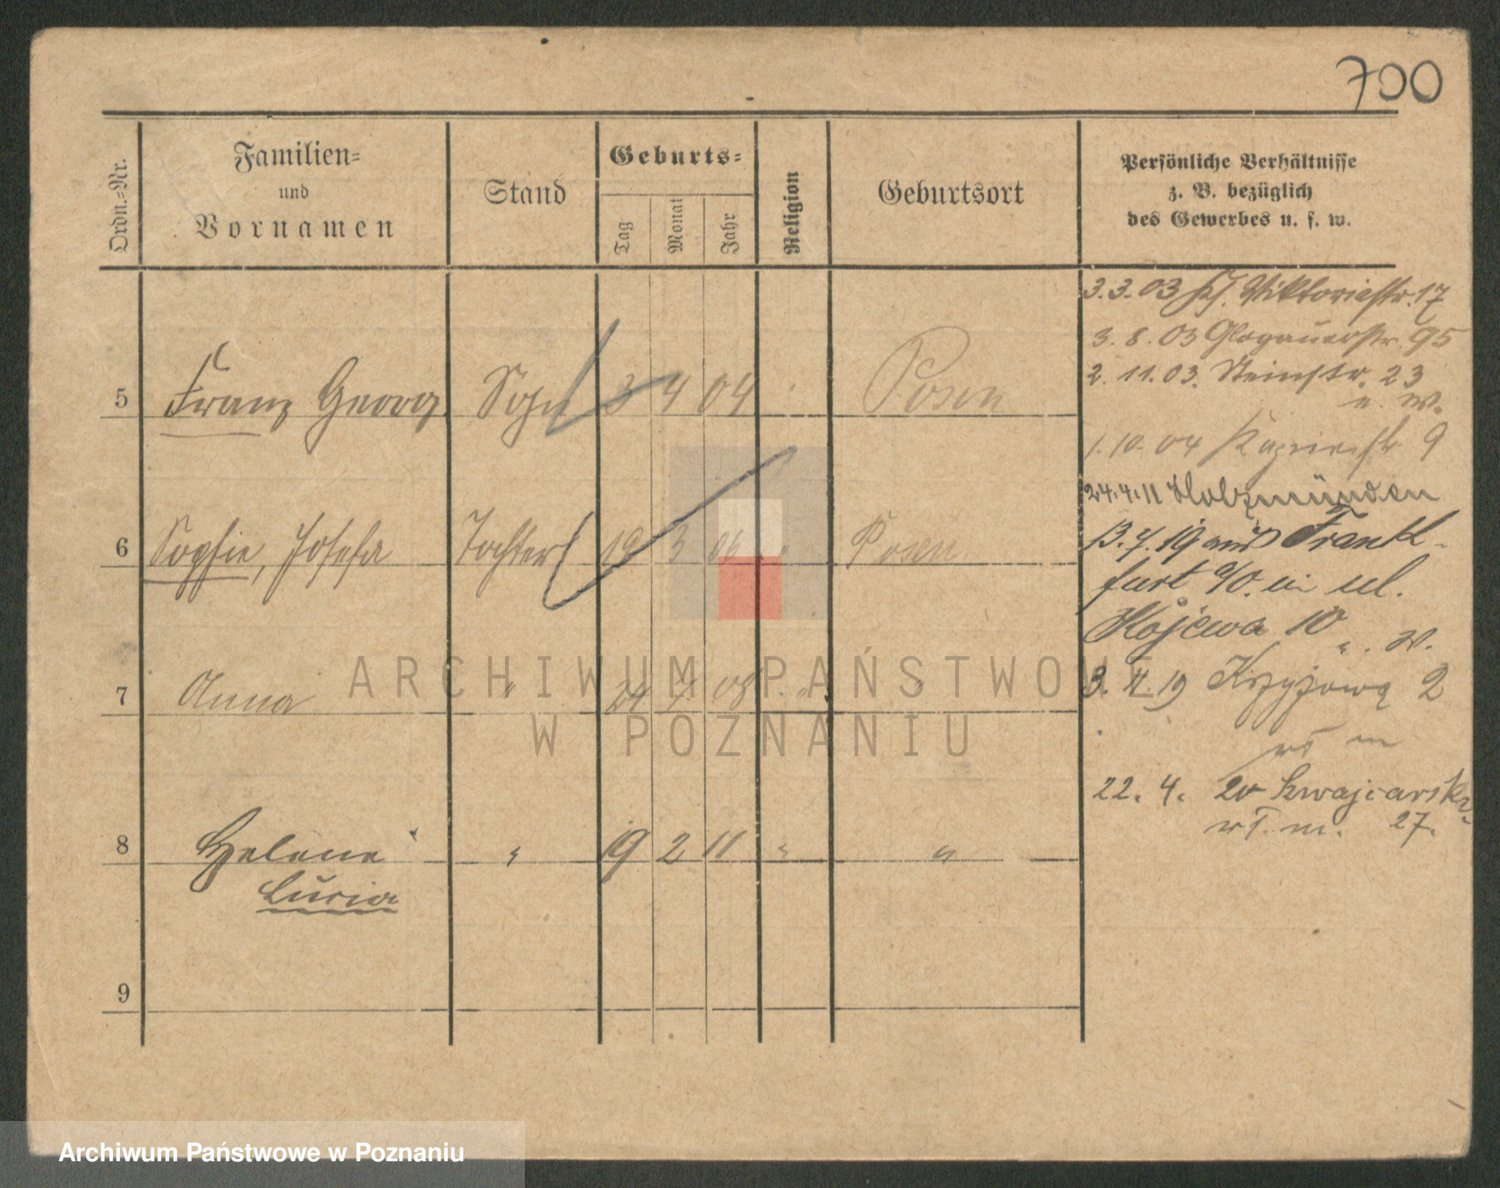 700
Ordn.-Nr.
Familien-
und
Vornamen
Stand
Geburts-
Tag
Monat
Jahr
Religion
Geburtsort
Persönliche Verhältnisse
z. B. bezüglich
des Gewerbes u. s. w.
3.3.03 Viktoriastr. 17
3. 8. 03 Glogauerstr. 95
2. 11. 03. Steinstr. 23
5 Franz Georg Sohn 3 4 04 Posen
1. 10. 04 9
24.4.11 Holzmünden
6 Sophie, Josefa Tochter 19 3 06 " Posen
13.7.19 aus Frank-
furt a/O. ul.
10
7 Anna " 24 7 08 " "
3. 11. 19 Krzyżowa 2
22. 4. 20
8 Helene " 19 2 11 " "
wł. m. 27.
Lucia
9
ARCHIWUM PAŃSTWOWE
W POZNANIU
Archiwum Państwowe w Poznaniu